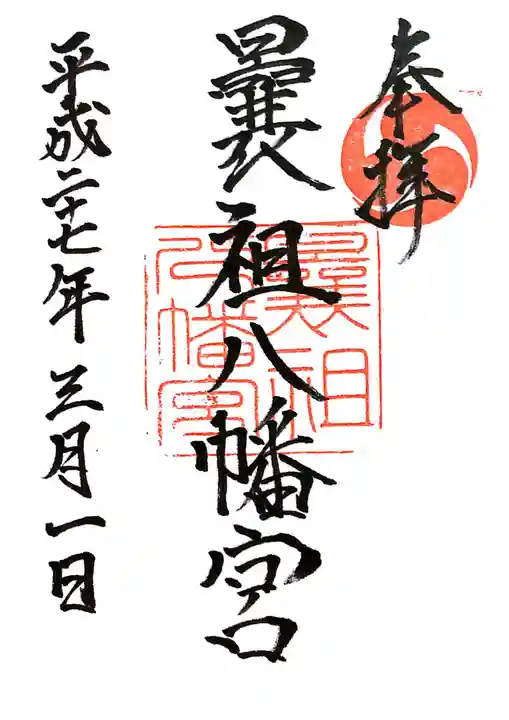 奉拝
曩祖八幡宮
平成二十七年三月一日
曩祖
八幡宮